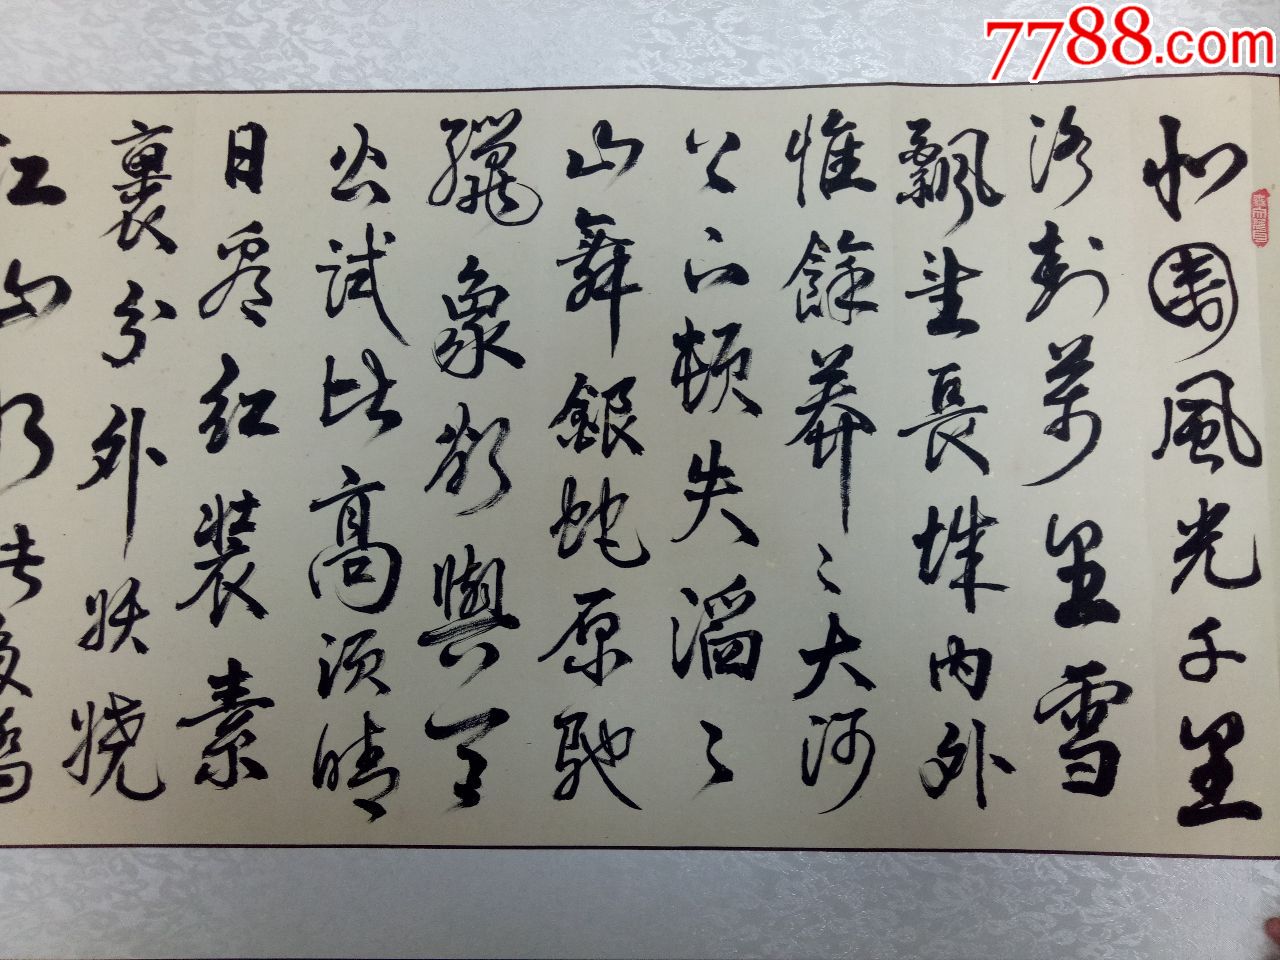 北國風光千里
冰封萬里雪
飄望長城内外
惟餘莽〻大河
上下頓失滔〻
山舞銀蛇原馳
蠟象欲與天
公試比高須晴
日看紅裝素
裹分外妖嬈
江山
7788.com